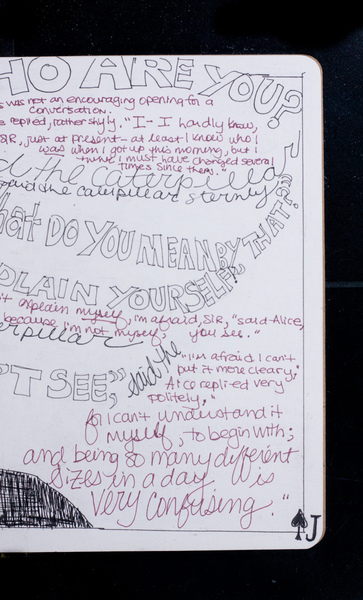 HO ARE YOU?"
s was not an encouraging opening for a
conversation.
e replied, rather shyly, "I- I hardly know,
SIR, just at present- at least I know who I
was when I got up this morning, but I
think I must have changed several
times since then."
the caterpilla
said the caterpillar sternly
hat DO YOU MEAN BY THAT?"
PLAIN YOURSELF"
't explain myself, I'm afraid, SIR," said Alice,
because I'm not myself, you see."
erpillar
'T SEE," said the
"I'm afraid I can't
put it more cleary,"
Alice replied very
politely,"
for I can't understand it
myself, to begin with;
and being so many different
sizes in a day is
very confusing."
J